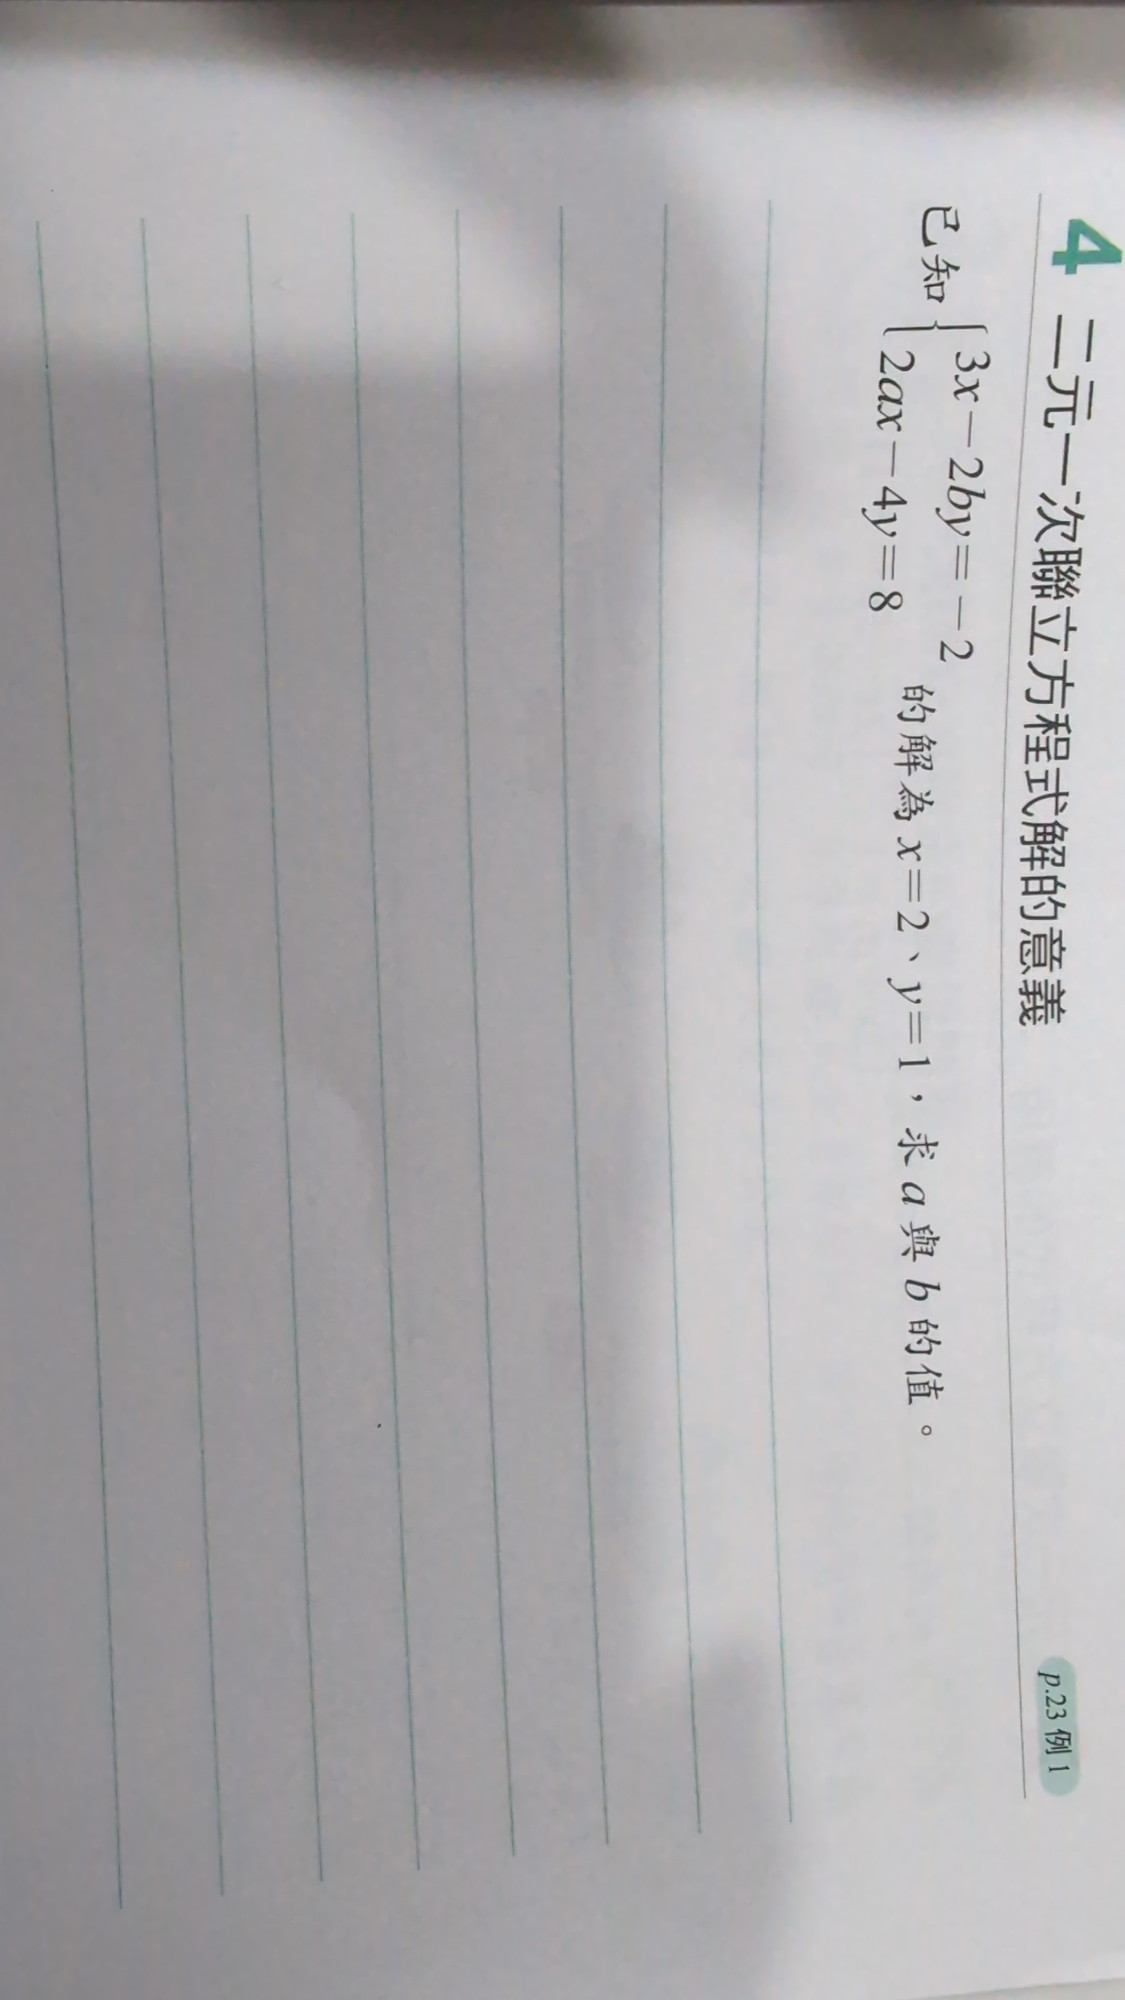 4 二元一次聯立方程式解的意義
p.23 例 1
已知 { 3x－2by＝－2
2ax－4y＝8 的解為 x＝2、y＝1，求 a 與 b 的值。